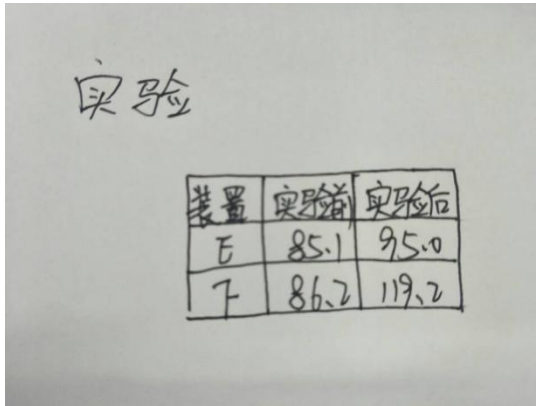 实验
装置 实验前 实验后
E 85.1 95.0
F 86.2 119.2